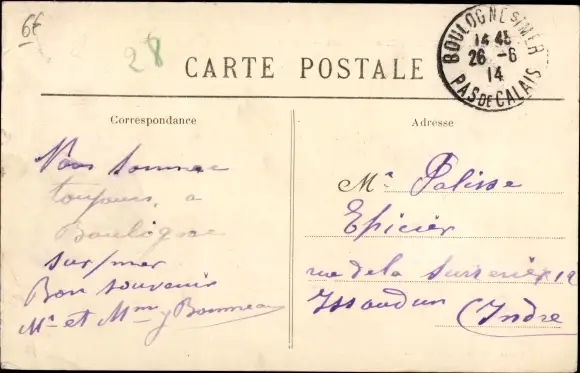 6€
28
CARTE POSTALE
BOULOGNE S/MER
14 45
26 - 6
14
PAS DE CALAIS
Correspondance
Nous sommes
toujours a
Boulogne
sur/mer
Bon souvenir
Mr et Mme Bonneau
Adresse
Mr Palisse
Epicier
rue de la
Issoudun (Indre